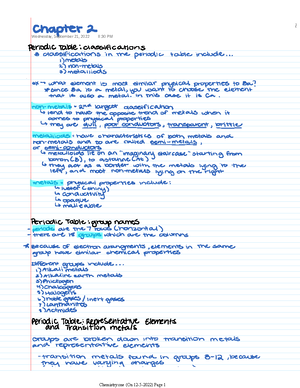 Chapter 2
Wednesday, December 21, 2022 6:30 PM
Periodic Table: classifications
classifications in the periodic table include...
1) metals
2) non-metals
3) metalloids
ex → what element is most similar physical properties to Ba?
since Ba is a metal, you want to choose the element
that is also a metal. in this case it is Ca.
non-metals - 2nd largest classification
tend to have the opposite trend of metals when it
comes to physical properties
they are dull, poor conductors, transparent, brittle
metalloids - have characteristics of both metals and
non-metals and so are called semi-metals,
or semi-conductors
metalloids lie on an "imaginary staircase" starting from
boron (B), to astatine (At)
they act as a border with the metals lying to the
left, and most non-metals lying on the right
metals - physical properties include:
luster (shiny)
conductivity
opaque
malleable
Periodic Table: group names
- periods are the 7 rows (horizontal)
- there are 18 groups which are the columns
Because of electron arrangements, elements in the same
group have similar chemical properties
Different groups include...
1) Alkali metals
2) Alkaline earth metals
3) Pnictogen
4) Chalcogens
5) Halogens
6) noble gases / inert gases
7) Lanthanides
8) Actinides
Periodic Table: Representative Elements
and Transition metals
Groups are broken down into transition metals
and representative elements
- transition metals found in groups 3-12, because
they have varying charges
Chemistry ose (On 12-3-2022) Page 1